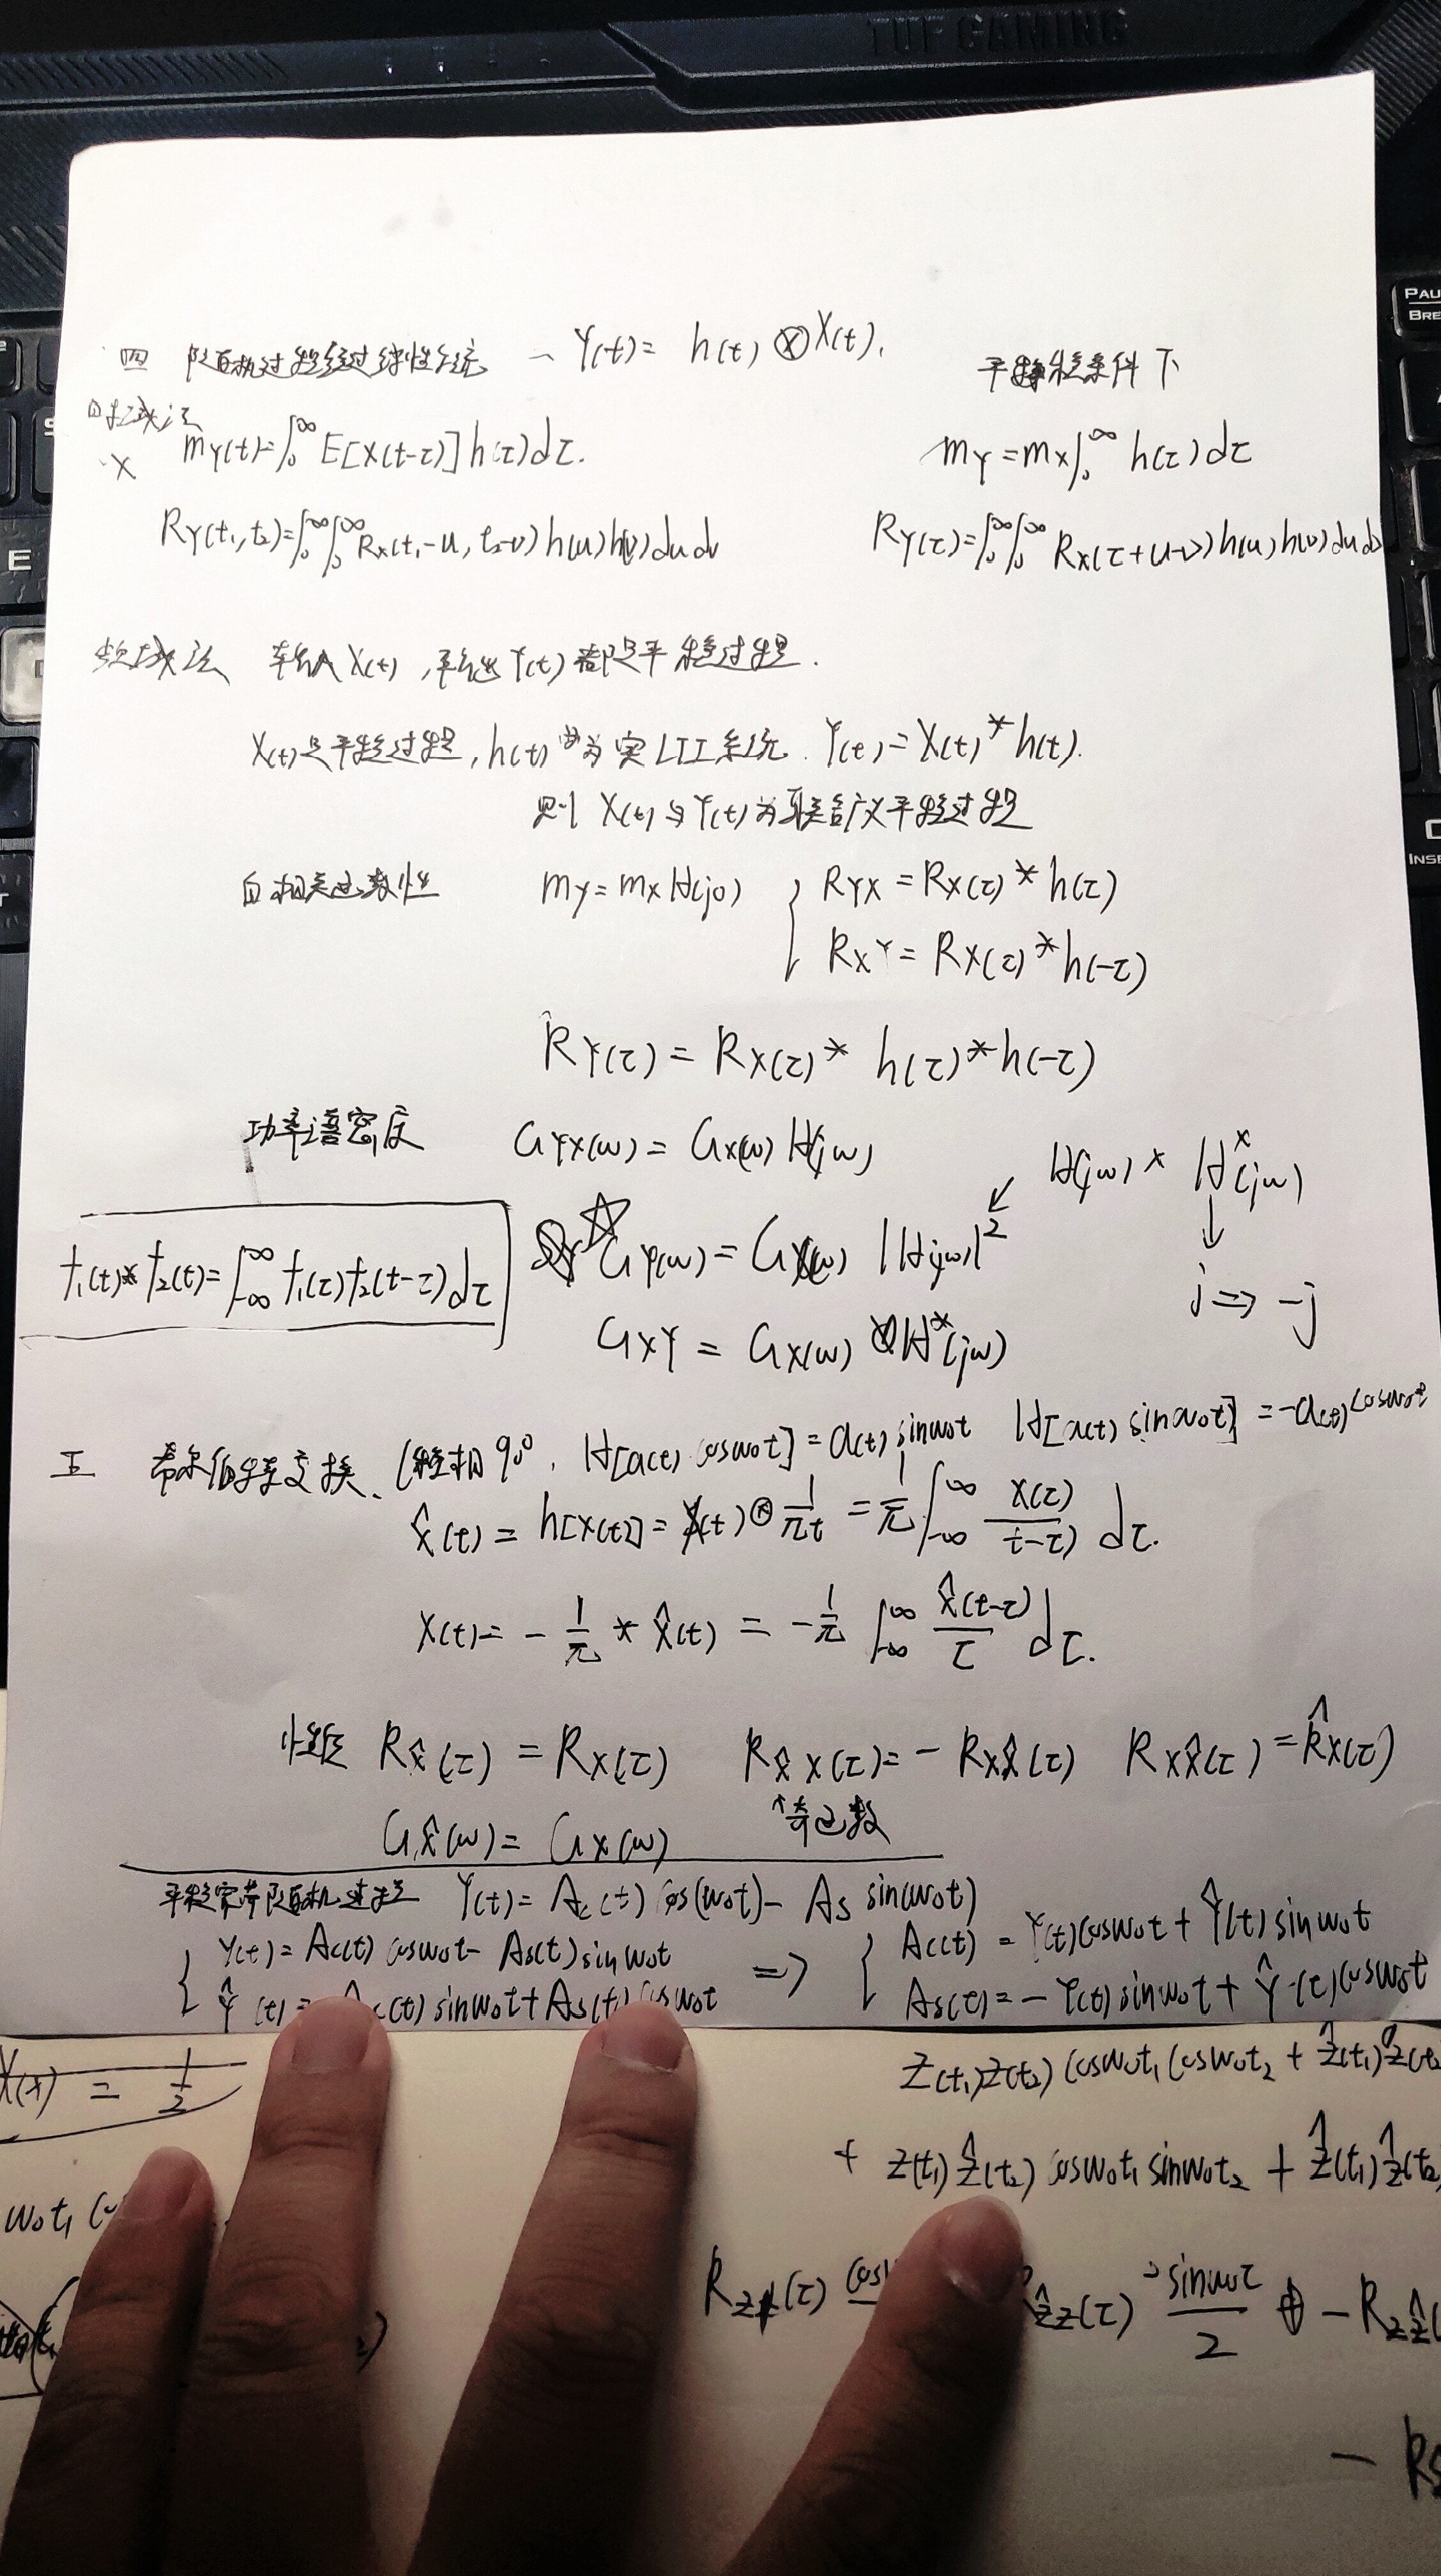 TUF GAMING
PAU
BRE
INSE
E
四 随机过程经过线性系统 — Y(t) = h(t) ⊗ X(t).
平稳条件下
时域法
m_Y(t) = ∫₀^∞ E[X(t-τ)] h(τ) dτ.
m_Y = m_X ∫₀^∞ h(τ) dτ
R_Y(t₁, t₂) = ∫₀^∞ ∫₀^∞ R_X(t₁-u, t₂-v) h(u) h(v) du dv
R_Y(τ) = ∫₀^∞ ∫₀^∞ R_X(τ+u-v) h(u) h(v) du dv
频域法 输入 X(t), 输出 Y(t) 都是平稳过程.
X(t)是平稳过程, h(t) 为实 LTI 系统. Y(t) = X(t) * h(t).
则 X(t) 与 Y(t) 为联合广义平稳过程
自相关函数性 m_Y = m_X H(j0) { R_YX = R_X(τ) * h(τ)
R_XY = R_X(τ) * h(-τ)
R_Y(τ) = R_X(τ) * h(τ) * h(-τ)
功率谱密度 G_YX(ω) = G_X(ω) H(jω)
H(jω) × H*(jω)
☆ G_Y(ω) = G_X(ω) |H(jω)|²
↙ ↓
f₁(t) * f₂(t) = ∫_{-∞}^{∞} f₁(τ) f₂(t-τ) dτ
j ⇒ -j
G_XY = G_X(ω) H*(jω)
五 希尔伯特变换、(移相 90°. H[a(t) cosω₀t] = a(t) sinω₀t H[a(t) sinω₀t] = -a(t) cosω₀t
X̂(t) = h[X(t)] = X(t) ⊗ 1/πt = 1/π ∫_{-∞}^{∞} X(τ)/(t-τ) dτ.
X(t) = - 1/π * X̂(t) = - 1/π ∫_{-∞}^{∞} X̂(t-τ)/τ dτ.
性质 R_X̂(τ) = R_X(τ) R_X̂X(τ) = - R_XX̂(τ) R_XX̂(τ) = R̂_X(τ)
↑奇函数
G_X̂(ω) = G_X(ω)
平稳窄带随机过程 Y(t) = A_c(t) cos(ω₀t) - A_s sin(ω₀t)
{ Y(t) = A_c(t) cosω₀t - A_s(t) sinω₀t ⇒ { A_c(t) = Y(t) cosω₀t + Ŷ(t) sinω₀t
Ŷ(t) = A_c(t) sinω₀t + A_s(t) cosω₀t A_s(t) = - Y(t) sinω₀t + Ŷ(t) cosω₀t
X(x) = 1/2
Z(t₁)Z(t₂) cosω₀t₁ cosω₀t₂ + Ẑ(t₁) Z(t₂
+ Z(t₁) Ẑ(t₂) cosω₀t₁ sinω₀t₂ + Ẑ(t₁) Ẑ(t₂)
ω₀t₁
(τ) cos R_ẐZ(τ) sinω₀τ/2 - R_ZẐ(
- R